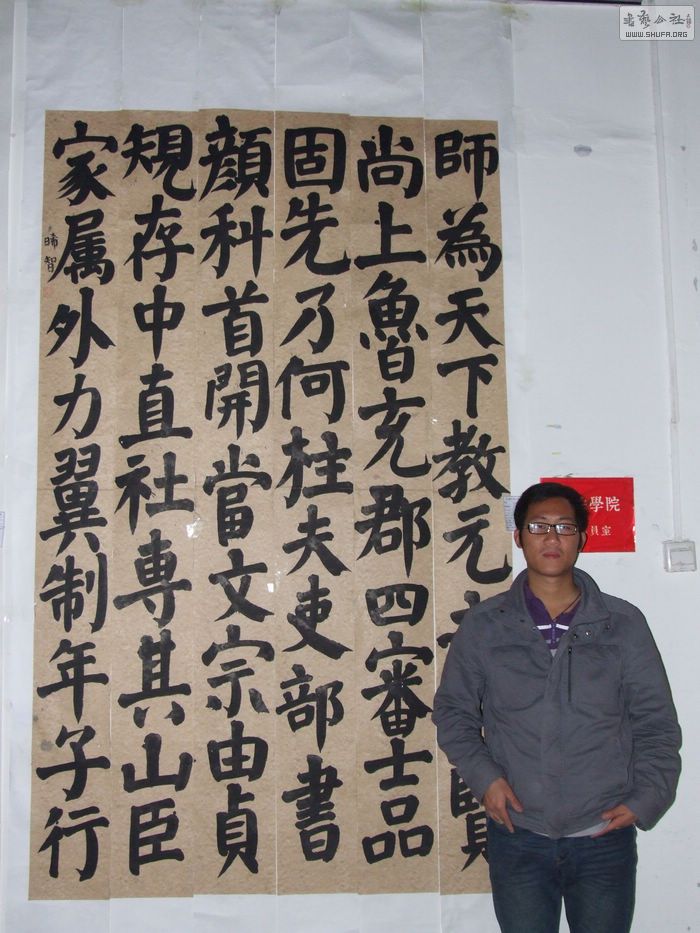 師為天下教元賢
尚上魯充郡四審士品
固先乃何柱夫吏部書
顔科首開當文宗由貞
規存中直社專其山臣
家属外力翼制年子行
晞智
學院
員室
公社
WWW.SHUFA.ORG